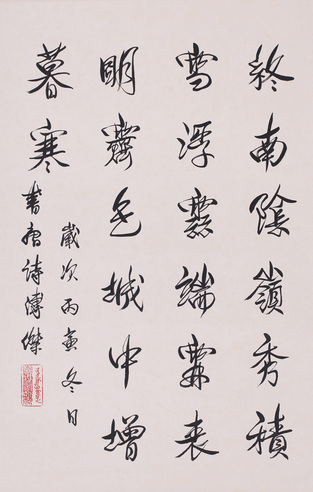 終南陰嶺秀積
雪浮雲端表
明霽色城中增
暮寒
歲次丙寅冬日
書唐詩溥傑